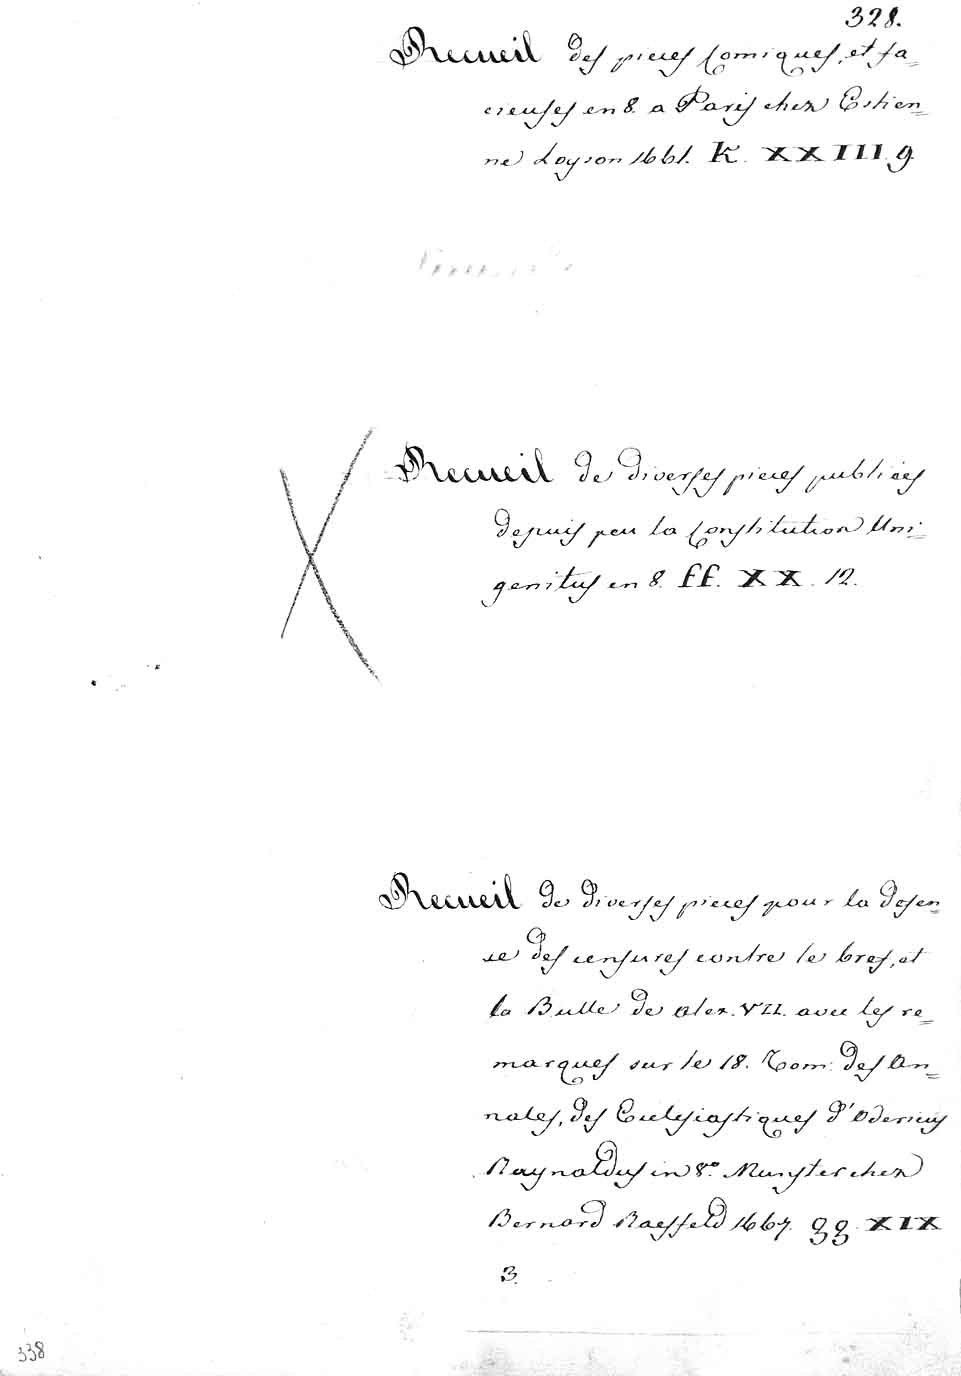 328.
Recueil des pieces Comiques, et fa=
cieuses en 8. a Paris chez Estien=
ne Loyson 1661. K. XXIII. 9
Recueil de diverses pieces publiées
depuis peu la Constitution Uni=
genitus en 8. ff. XX. 12.
Recueil de diverses pieces pour la defen=
se des censures contre le bref, et
la Bulle de Alex. VII. avec les re=
marques sur le 18. Tom: des An=
nales, des Eclesiastiques d'Odericus
Raynaldus in 8.º Munster chez
Bernard Raesfeld 1667. gg. XIX
3.
338